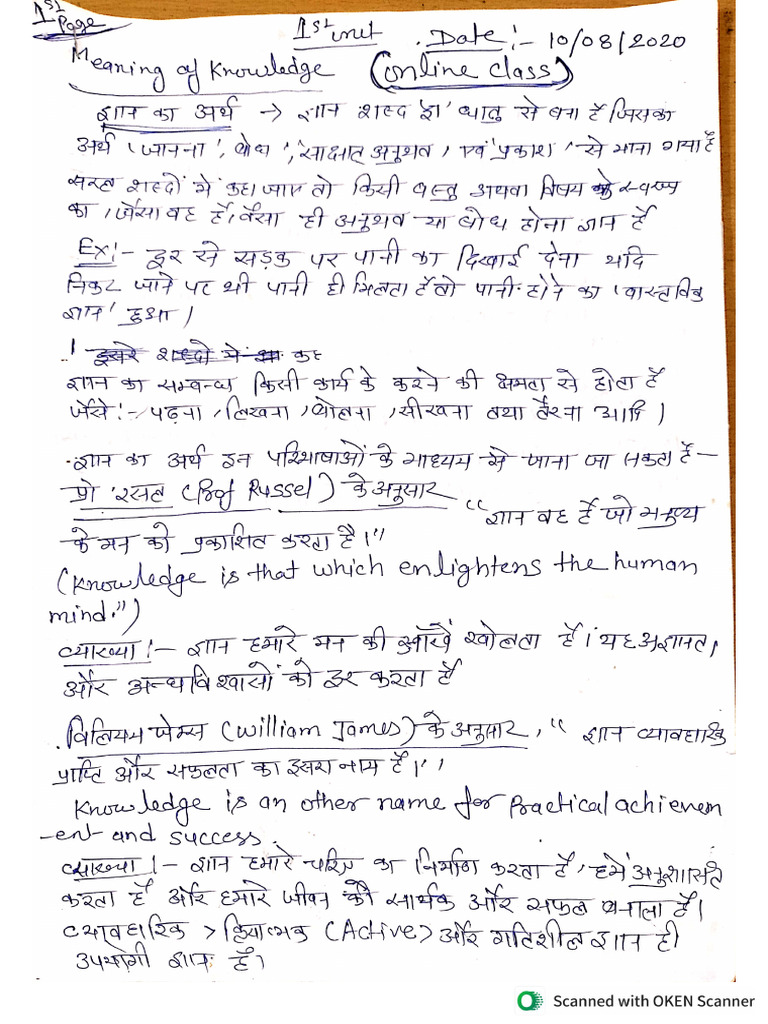 1st Page
1st unit . Date :- 10/08/2020
Meaning of Knowledge (online class)
ज्ञान का अर्थ → ज्ञान शब्द 'ज्ञ' धातु से बना है जिसका
अर्थ 'जानना', बोध', 'साक्षात अनुभव', एवं 'प्रकाश' से माना गया है
सरल शब्दों में कहा जाए तो किसी वस्तु अथवा विषय के स्वरूप
का, जैसा वह है, वैसा ही अनुभव या बोध होना ज्ञान है
Ex:- दूर से सड़क पर पानी का दिखाई देना यदि
निकट जाने पर भी पानी ही मिलता है तो पानी होने का 'वास्तविक
ज्ञान' हुआ।
दूसरे शब्दों में कह
ज्ञान का सम्बन्ध किसी कार्य के करने की क्षमता से होता है
जैसे:- पढ़ना, लिखना, बोलना, सीखना तथा तैरना आदि।
ज्ञान का अर्थ इन परिभाषाओं के माध्यम से जाना जा सकता है -
प्रो रसल (Prof Russel) के अनुसार
"ज्ञान वह है जो मनुष्य
के मन को प्रकाशित करता है।"
(Knowledge is that which enlightens the human
mind.")
व्याख्या:- ज्ञान हमारे मन की आँखें खोलता है। यह अज्ञानता,
और अन्धविश्वासों को दूर करता है
विलियम जेम्स (William James) के अनुसार, " ज्ञान व्यावहारिक
प्राप्ति और सफलता का दूसरा नाम है।''
Knowledge is an other name for Practical achievem
-ent and success.
व्याख्या:- ज्ञान हमारे चरित्र का निर्माण करता है, हमें अनुशासित
करता है और हमारे जीवन को सार्थक और सफल बनाता है।
व्यावहारिक > क्रियात्मक (Active> और गतिशील ज्ञान ही
उपयोगी ज्ञान है।
Scanned with OKEN Scanner